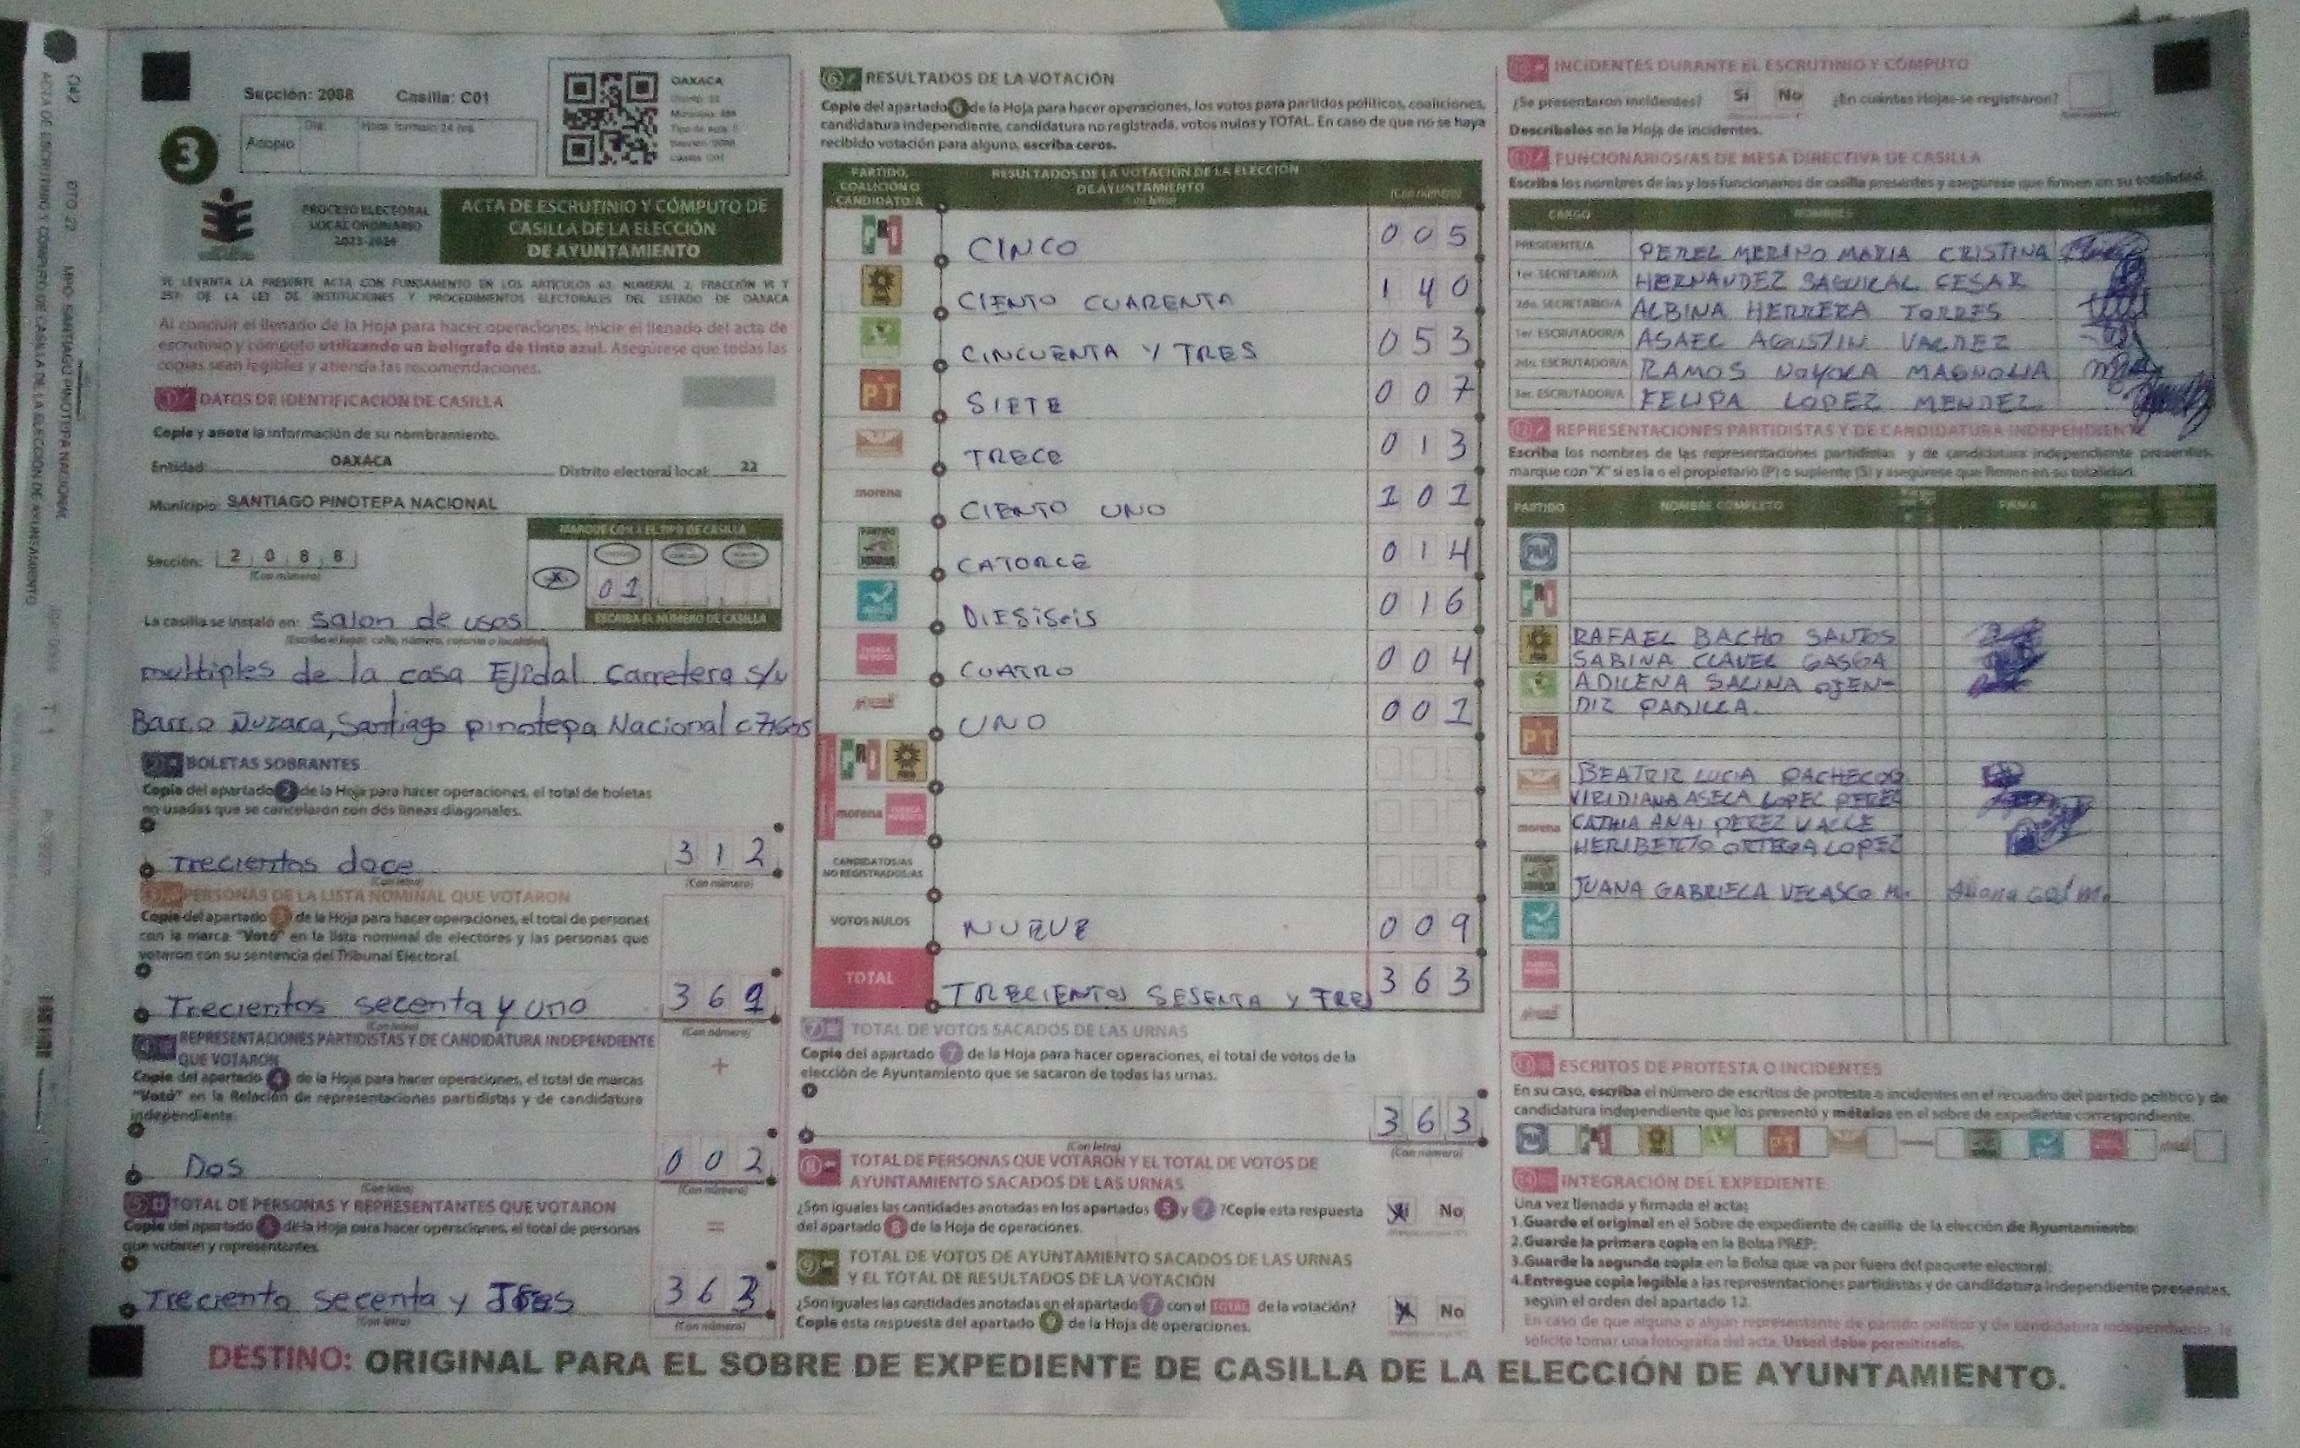 Sección: 2088 Casilla: C01
Acopio
Día Hora: formato 24 hrs.
OAXACA
3
PROCESO ELECTORAL
LOCAL ORDINARIO
2023-2024
ACTA DE ESCRUTINIO Y CÓMPUTO DE
CASILLA DE LA ELECCIÓN
DE AYUNTAMIENTO
SE LEVANTA LA PRESENTE ACTA CON FUNDAMENTO EN LOS ARTÍCULOS 63, NUMERAL 2, FRACCIÓN VI Y
DE LA LEY DE INSTITUCIONES Y PROCEDIMIENTOS ELECTORALES DEL ESTADO DE OAXACA
Al concluir el llenado de la Hoja para hacer operaciones, inicie el llenado del acta de
escrutinio y cómputo utilizando un bolígrafo de tinta azul. Asegúrese que todas las
copias sean legibles y atienda las recomendaciones.
1 DATOS DE IDENTIFICACIÓN DE CASILLA
Copie y anote la información de su nombramiento.
Entidad: OAXACA Distrito electoral local: 22
Municipio: SANTIAGO PINOTEPA NACIONAL
MARQUE CON X EL TIPO DE CASILLA
Sección: 2 0 8 8
(Con número)
X 01
ESCRIBA EL NÚMERO DE CASILLA
La casilla se instaló en: Salon de usos
(Escriba el lugar: calle, número, colonia o localidad)
multiples de la casa Ejidal Carretera s/n
Barrio Ñuzaca, Santiago pinotepa Nacional
BOLETAS SOBRANTES
Copie del apartado 2 de la Hoja para hacer operaciones, el total de boletas
no usadas que se cancelaron con dos líneas diagonales.
Trecientos doce 312
(Con letra) (Con número)
PERSONAS DE LA LISTA NOMINAL QUE VOTARON
Copie del apartado 3 de la Hoja para hacer operaciones, el total de personas
con la marca "Votó" en la lista nominal de electores y las personas que
votaron con su sentencia del Tribunal Electoral.
Trecientos secenta y uno 361
(Con letra) (Con número)
REPRESENTACIONES PARTIDISTAS Y DE CANDIDATURA INDEPENDIENTE
QUE VOTARON
Copie del apartado 4 de la Hoja para hacer operaciones, el total de marcas
"Votó" en la Relación de representaciones partidistas y de candidatura
independiente.
+
Dos 002
(Con letra) (Con número)
TOTAL DE PERSONAS Y REPRESENTANTES QUE VOTARON
Copie del apartado 5 de la Hoja para hacer operaciones, el total de personas
que votaron y representantes.
=
Treciento secenta y Tres 363
(Con letra) (Con número)
6 RESULTADOS DE LA VOTACIÓN
Copie del apartado 6 de la Hoja para hacer operaciones, los votos para partidos políticos, coaliciones,
candidatura independiente, candidatura no registrada, votos nulos y TOTAL. En caso de que no se haya
recibido votación para alguno, escriba ceros.
PARTIDO,
COALICIÓN O
CANDIDATO/A
RESULTADOS DE LA VOTACIÓN DE LA ELECCIÓN
DE AYUNTAMIENTO
(Con letra) (Con número)
PRI CINCO 005
CIENTO CUARENTA 140
CINCUENTA Y TRES 053
PT SIETE 007
TRECE 013
morena CIENTO UNO 101
CATORCE 014
DIESiSeiS 016
CUATRO 004
UNO 001
PRI
morena
CANDIDATOS/AS
NO REGISTRADOS/AS
VOTOS NULOS NUEVE 009
TOTAL TRECIENTOS SESENTA Y TRES 363
7 TOTAL DE VOTOS SACADOS DE LAS URNAS
Copie del apartado 7 de la Hoja para hacer operaciones, el total de votos de la
elección de Ayuntamiento que se sacaron de todas las urnas.
363
(Con letra) (Con número)
8 TOTAL DE PERSONAS QUE VOTARON Y EL TOTAL DE VOTOS DE
AYUNTAMIENTO SACADOS DE LAS URNAS
¿Son iguales las cantidades anotadas en los apartados 5 y 7 ? Copie esta respuesta Sí No
del apartado 8 de la Hoja de operaciones.
9 TOTAL DE VOTOS DE AYUNTAMIENTO SACADOS DE LAS URNAS
Y EL TOTAL DE RESULTADOS DE LA VOTACIÓN
¿Son iguales las cantidades anotadas en el apartado 7 con el TOTAL de la votación? Sí No
Copie esta respuesta del apartado 9 de la Hoja de operaciones.
INCIDENTES DURANTE EL ESCRUTINIO Y CÓMPUTO
¿Se presentaron incidentes? Sí No ¿En cuántas Hojas se registraron?
Descríbalos en la Hoja de incidentes.
FUNCIONARIOS/AS DE MESA DIRECTIVA DE CASILLA
Escriba los nombres de las y los funcionarios de casilla presentes y asegúrese que firmen en su totalidad.
CARGO NOMBRES FIRMAS
PRESIDENTE/A PEREZ MERINO MARIA CRISTINA
1er. SECRETARIO/A HERNANDEZ CESAR
2do. SECRETARIO/A ALBINA HERRERA TORRES
1er. ESCRUTADOR/A ASAEL AGUSTIN VALDEZ
2do. ESCRUTADOR/A RAMOS NOYOLA MAGNOLIA
3er. ESCRUTADOR/A FELIPA LOPEZ MENDEZ
REPRESENTACIONES PARTIDISTAS Y DE CANDIDATURA INDEPENDIENTE
Escriba los nombres de las representaciones partidistas y de candidatura independiente presentes,
marque con "X" si es la o el propietario (P) o suplente (S) y asegúrese que firmen en su totalidad.
PARTIDO NOMBRE COMPLETO FIRMA
PAN
PRI
RAFAEL BACHO SANTOS
SABINA CLAVEL GASGA
ADILENA SALINA
DIZ PADILLA
PT
BEATRIZ LUCIA PACHECO
VIRIDIANA ASELA LOPEZ PEREZ
morena CATHIA ANAI PEREZ VALLE
HERIBERTO ORTEGA LOPEZ
JUANA GABRIELA VELASCO M.
ESCRITOS DE PROTESTA O INCIDENTES
En su caso, escriba el número de escritos de protesta o incidentes en el recuadro del partido político y de
candidatura independiente que los presentó y métalos en el sobre de expediente correspondiente.
INTEGRACIÓN DEL EXPEDIENTE
Una vez llenada y firmada el acta:
1.Guarde el original en el Sobre de expediente de casilla de la elección de Ayuntamiento;
2.Guarde la primera copia en la Bolsa PREP;
3.Guarde la segunda copia en la Bolsa que va por fuera del paquete electoral;
4.Entregue copia legible a las representaciones partidistas y de candidatura independiente presentes,
según el orden del apartado 12.
En caso de que alguna o algún representante de partido político y de candidatura independiente, le
solicite tomar una fotografía del acta. Usted debe permitírselo.
DESTINO: ORIGINAL PARA EL SOBRE DE EXPEDIENTE DE CASILLA DE LA ELECCIÓN DE AYUNTAMIENTO.